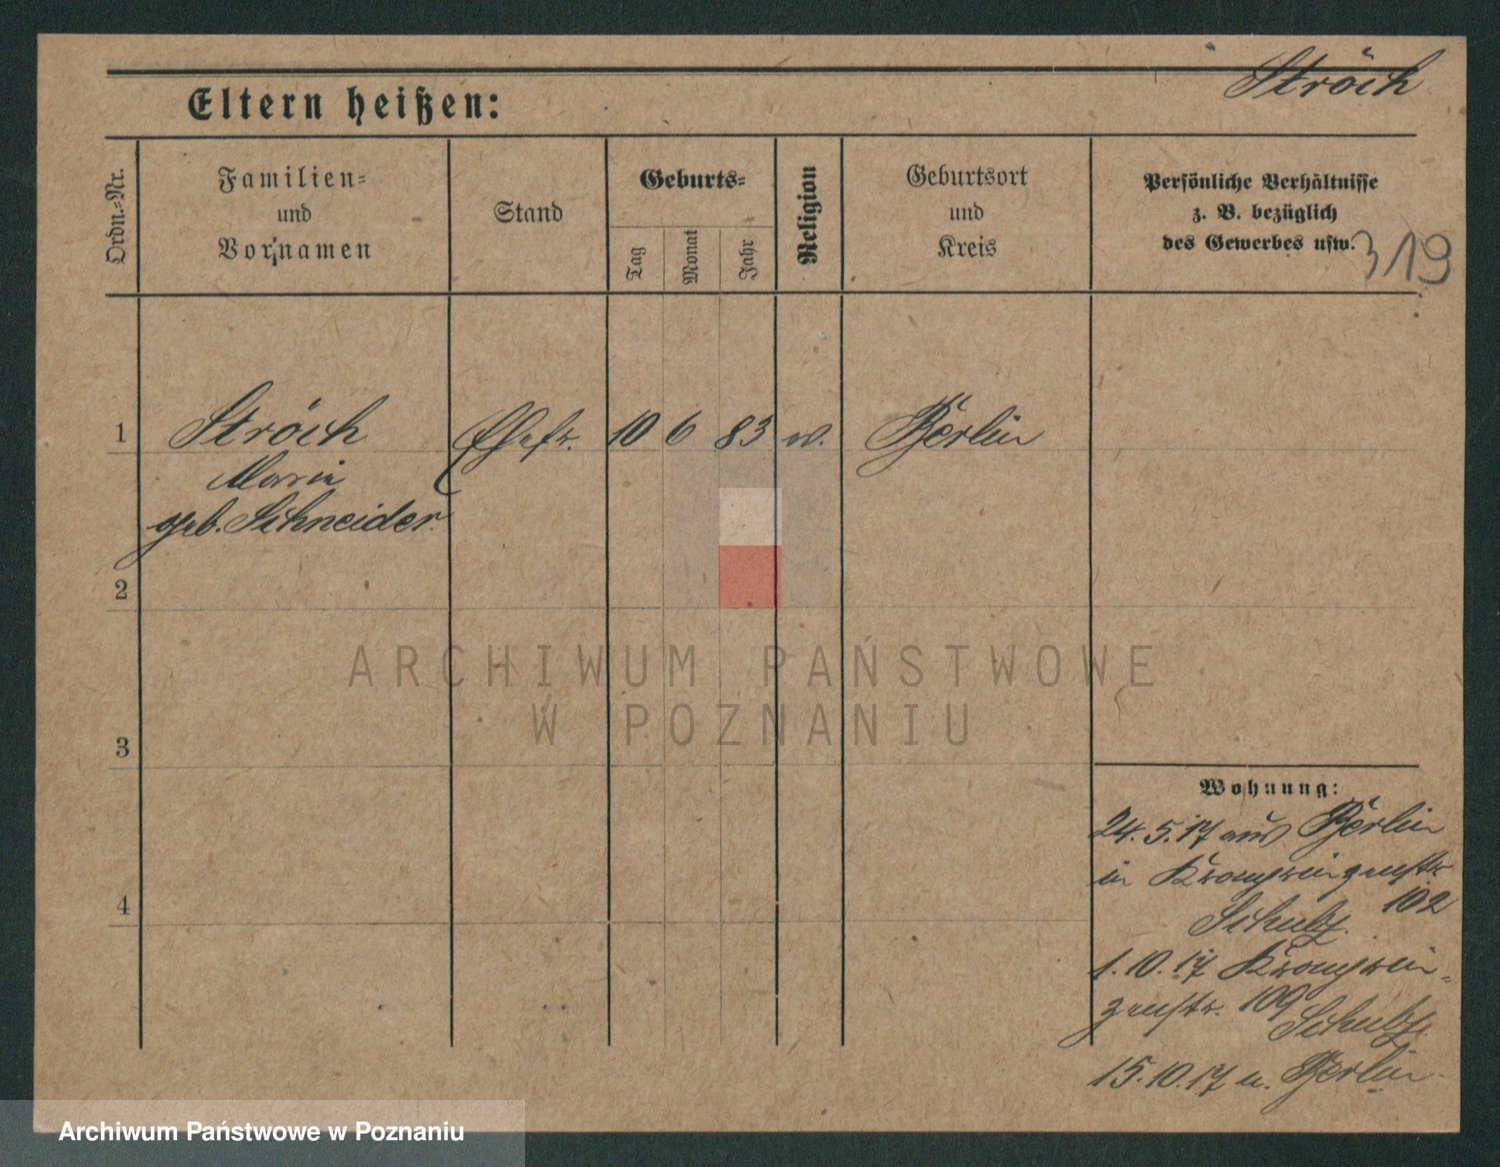 Ströich
Eltern heißen:
Ordn.-Nr.
Familien-
und
Vornamen
Stand
Geburts-
Tag
Monat
Jahr
Religion
Geburtsort
und
Kreis
Persönliche Verhältnisse
z. B. bezüglich
des Gewerbes usw.
319
1 Ströich Ehefr. 10 6 83 Berlin
Marie
geb. Schneider
2
ARCHIWUM PAŃSTWOWE
W POZNANIU
3
Wohnung:
24.5.17 aus Berlin
in Kronprinzenstr.
102
Schulz.
4
1.10.17 Kronprin-
zenstr. 109
Schulz.
15.10.17 n. Berlin.
Archiwum Państwowe w Poznaniu